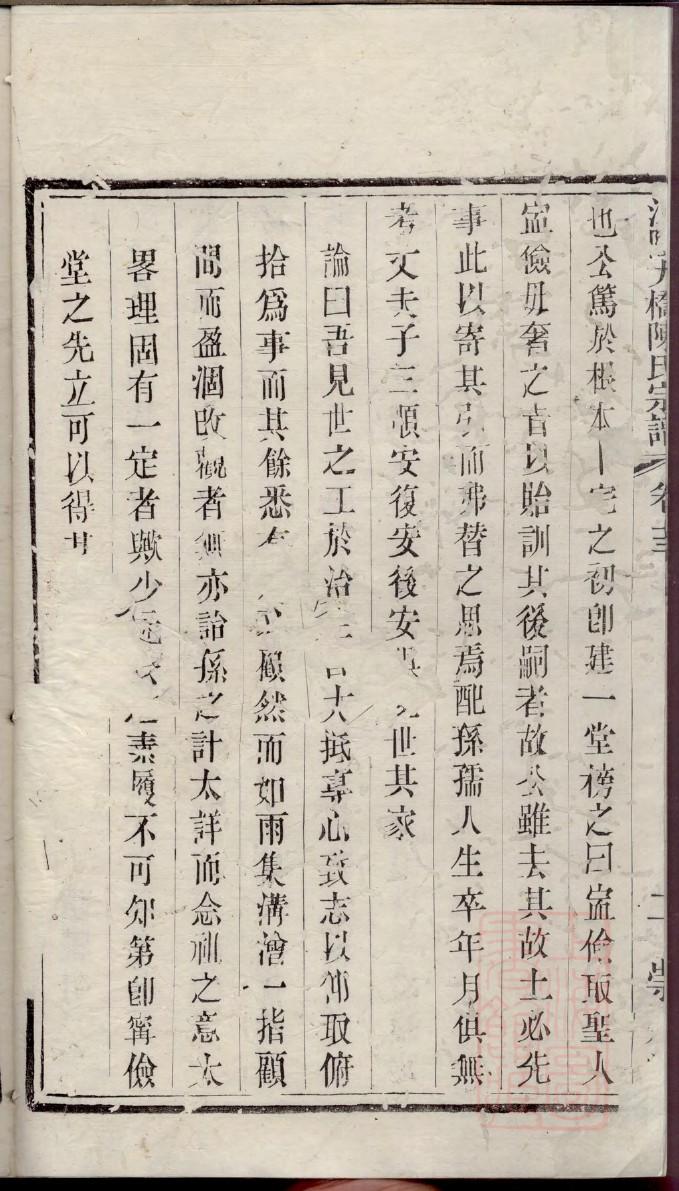 橋陳氏宗譜 卷
也公篤於根本卜宅之初卽建一堂榜之曰寍儉取聖人
寍儉毋奢之旨以貽訓其後嗣者故公雖去其故土必先
事此以寄其引而弗替之思焉配孫孺人生卒年月俱無
考丈夫子三順安復安後安世其家
論曰吾見世之工於治大抵專心致志以仰取俯
拾爲事而其餘悉顧然而如雨集溝澮一指顧
間而盈涸改觀者無亦詒孫之計太詳而念祖之意太
畧理固有一定者歟少素履不可知第卽寗儉
堂之先立可以得其